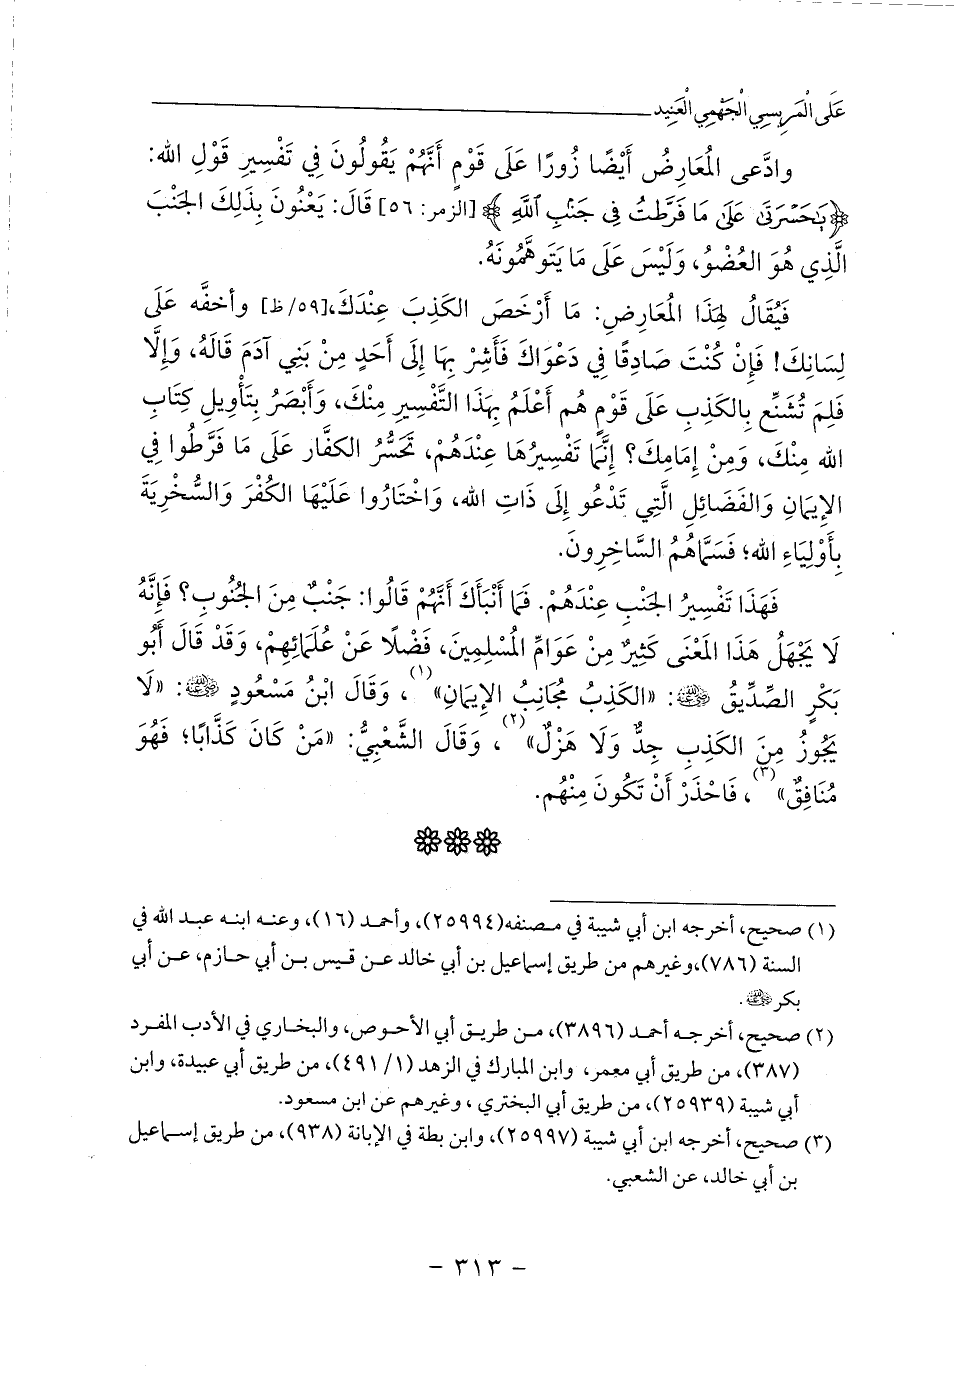 عَلَى الْمَرِيسِي الْجَهْمِي الْعَنِيد
وادَّعى الْمُعَارِضُ أَيْضًا زُورًا عَلَى قَوْمٍ أَنَّهُمْ يَقُولُونَ فِي تَفْسِيرِ قَوْلِ الله:
﴿يَٰحَسْرَتَىٰ عَلَىٰ مَا فَرَّطتُ فِي جَنۢبِ ٱللَّهِ﴾ [الزمر: ٥٦] قَالَ: يَعْنُونَ بِذَلِكَ الجَنْبَ
الَّذِي هُوَ العُضْوُ، وَلَيْسَ عَلَى مَا يَتَوهَّمُونَهُ.
فَيُقَالُ لِهَذَا الْمُعَارِضِ: مَا أَرْخَصَ الكَذِبَ عِنْدَكَ،[٥٩/ظ] وأخفَّه عَلَى
لِسَانِكَ! فَإِنْ كُنْتَ صَادِقًا فِي دَعْوَاكَ فَأَشِرْ بِهَا إِلَى أَحَدٍ مِنْ بَنِي آدَمَ قَالَهُ، وَإِلَّا
فَلِمَ تُشَنِّع بِالكَذِبِ عَلَى قَوْمٍ هُم أَعْلَمُ بِهَذَا التَّفْسِيرِ مِنْكَ، وَأَبْصَرُ بِتَأْوِيلِ كِتَابِ
الله مِنْكَ، وَمِنْ إِمَامِكَ؟ إِنَّمَا تَفْسِيرُهَا عِنْدَهُمْ، تَحَسُّرُ الكفَّار عَلَى مَا فَرَّطُوا فِي
الإِيمَانِ وَالفَضَائِلِ الَّتِي تَدْعُو إِلَى ذَاتِ الله، وَاخْتَارُوا عَلَيْهَا الكُفْرَ وَالسُّخْرِيَةَ
بِأَوْلِيَاءِ الله؛ فَسَمَّاهُمُ السَّاخِرِونَ.
فَهَذَا تَفْسِيرُ الجَنْبِ عِنْدَهُمْ. فَمَا أَنْبَأَكَ أَنَّهُمْ قَالُوا: جَنْبٌ مِنَ الجُنُوبِ؟ فَإِنَّهُ
لَا يَجْهَلُ هَذَا المَعْنَى كَثِيرٌ مِنْ عَوَامِّ المُسْلِمِينَ، فَضْلًا عَنْ عُلَمَائِهِمْ، وَقَدْ قَالَ أَبُو
بَكْرٍ الصِّدِّيقُ رضي الله عنه: «الكَذِبُ مُجَانِبُ الإِيمَانِ»(١)، وَقَالَ ابْنُ مَسْعُودٍ رضي الله عنه: «لَا
يَجُوزُ مِنَ الكَذِبِ جِدٌّ وَلَا هَزْلٌ»(٢)، وَقَالَ الشَّعْبِيُّ: «مَنْ كَانَ كَذَّابًا؛ فَهُوَ
مُنَافِقٌ»(٣)، فَاحْذَرْ أَنْ تَكُونَ مِنْهُم.
(١) صحيح، أخرجه ابن أبي شيبة في مصنفه(٢٥٩٩٤)، وأحمد (١٦)، وعنه ابنه عبد الله في
السنة (٧٨٦)،وغيرهم من طريق إسماعيل بن أبي خالد عن قيس بن أبي حازم، عن أبي
بكر رضي الله عنه.
(٢) صحيح، أخرجه أحمد (٣٨٩٦)، من طريق أبي الأحوص، والبخاري في الأدب المفرد
(٣٨٧)، من طريق أبي معمر، وابن المبارك في الزهد (١/ ٤٩١)، من طريق أبي عبيدة، وابن
أبي شيبة (٢٥٩٣٩)، من طريق أبي البختري ، وغيرهم عن ابن مسعود.
(٣) صحيح، أخرجه ابن أبي شيبة (٢٥٩٩٧)، وابن بطة في الإبانة (٩٣٨)، من طريق إسماعيل
بن أبي خالد، عن الشعبي.
- ٣١٣ -